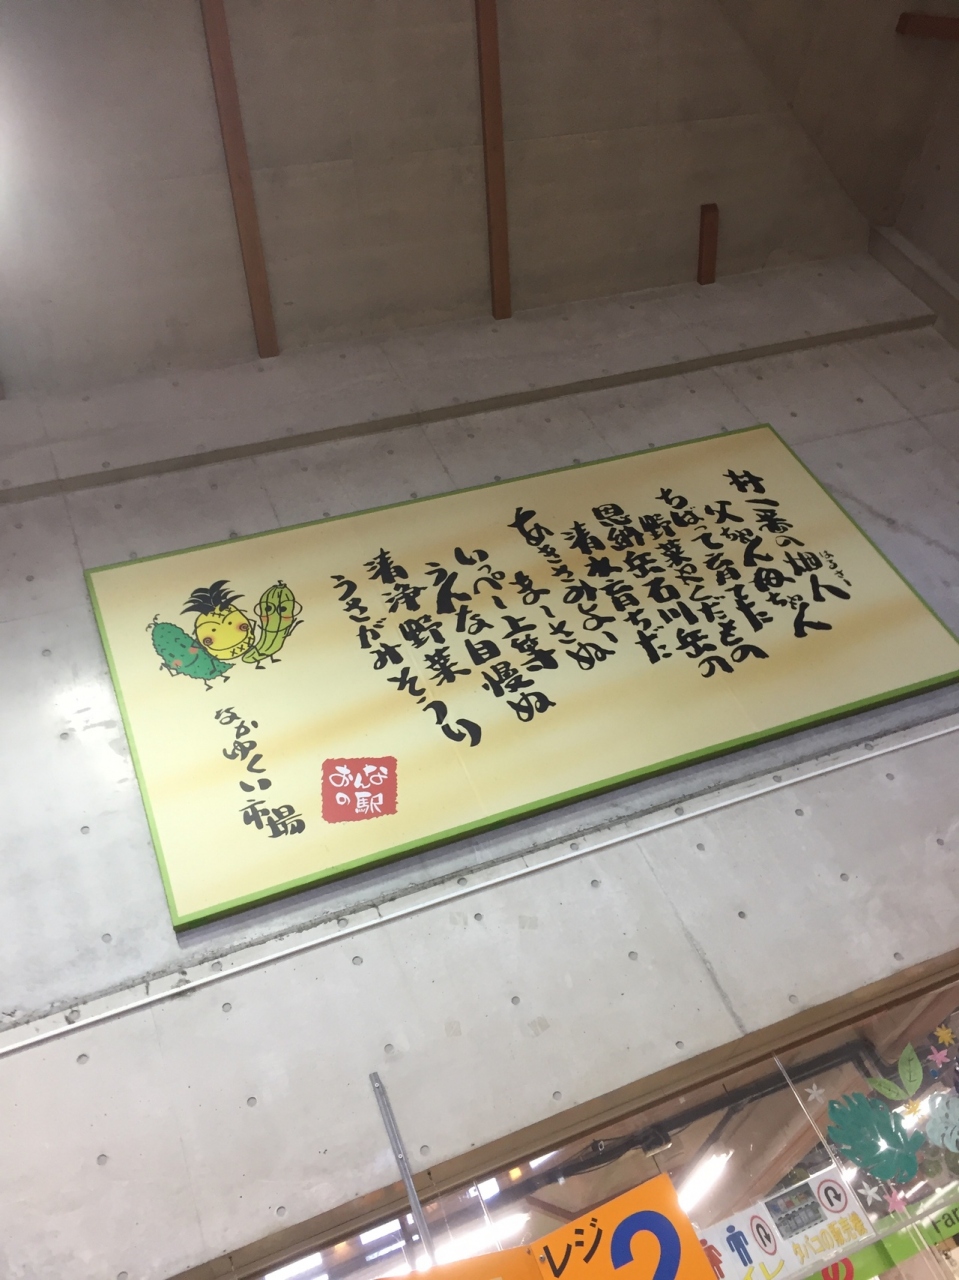 村一番の畑人
はるさー
父ちゃん母ちゃん
ちばって育てた
野菜やくだもの
恩納岳石川岳の
清水育ちだ
あきさみよい
まーさぬ
いっぺー上等
うんな自慢ぬ
清浄野菜
うさがみそうり
おんなの駅
なかゆくい市場
レジ2
トイレ
タバコの販売機